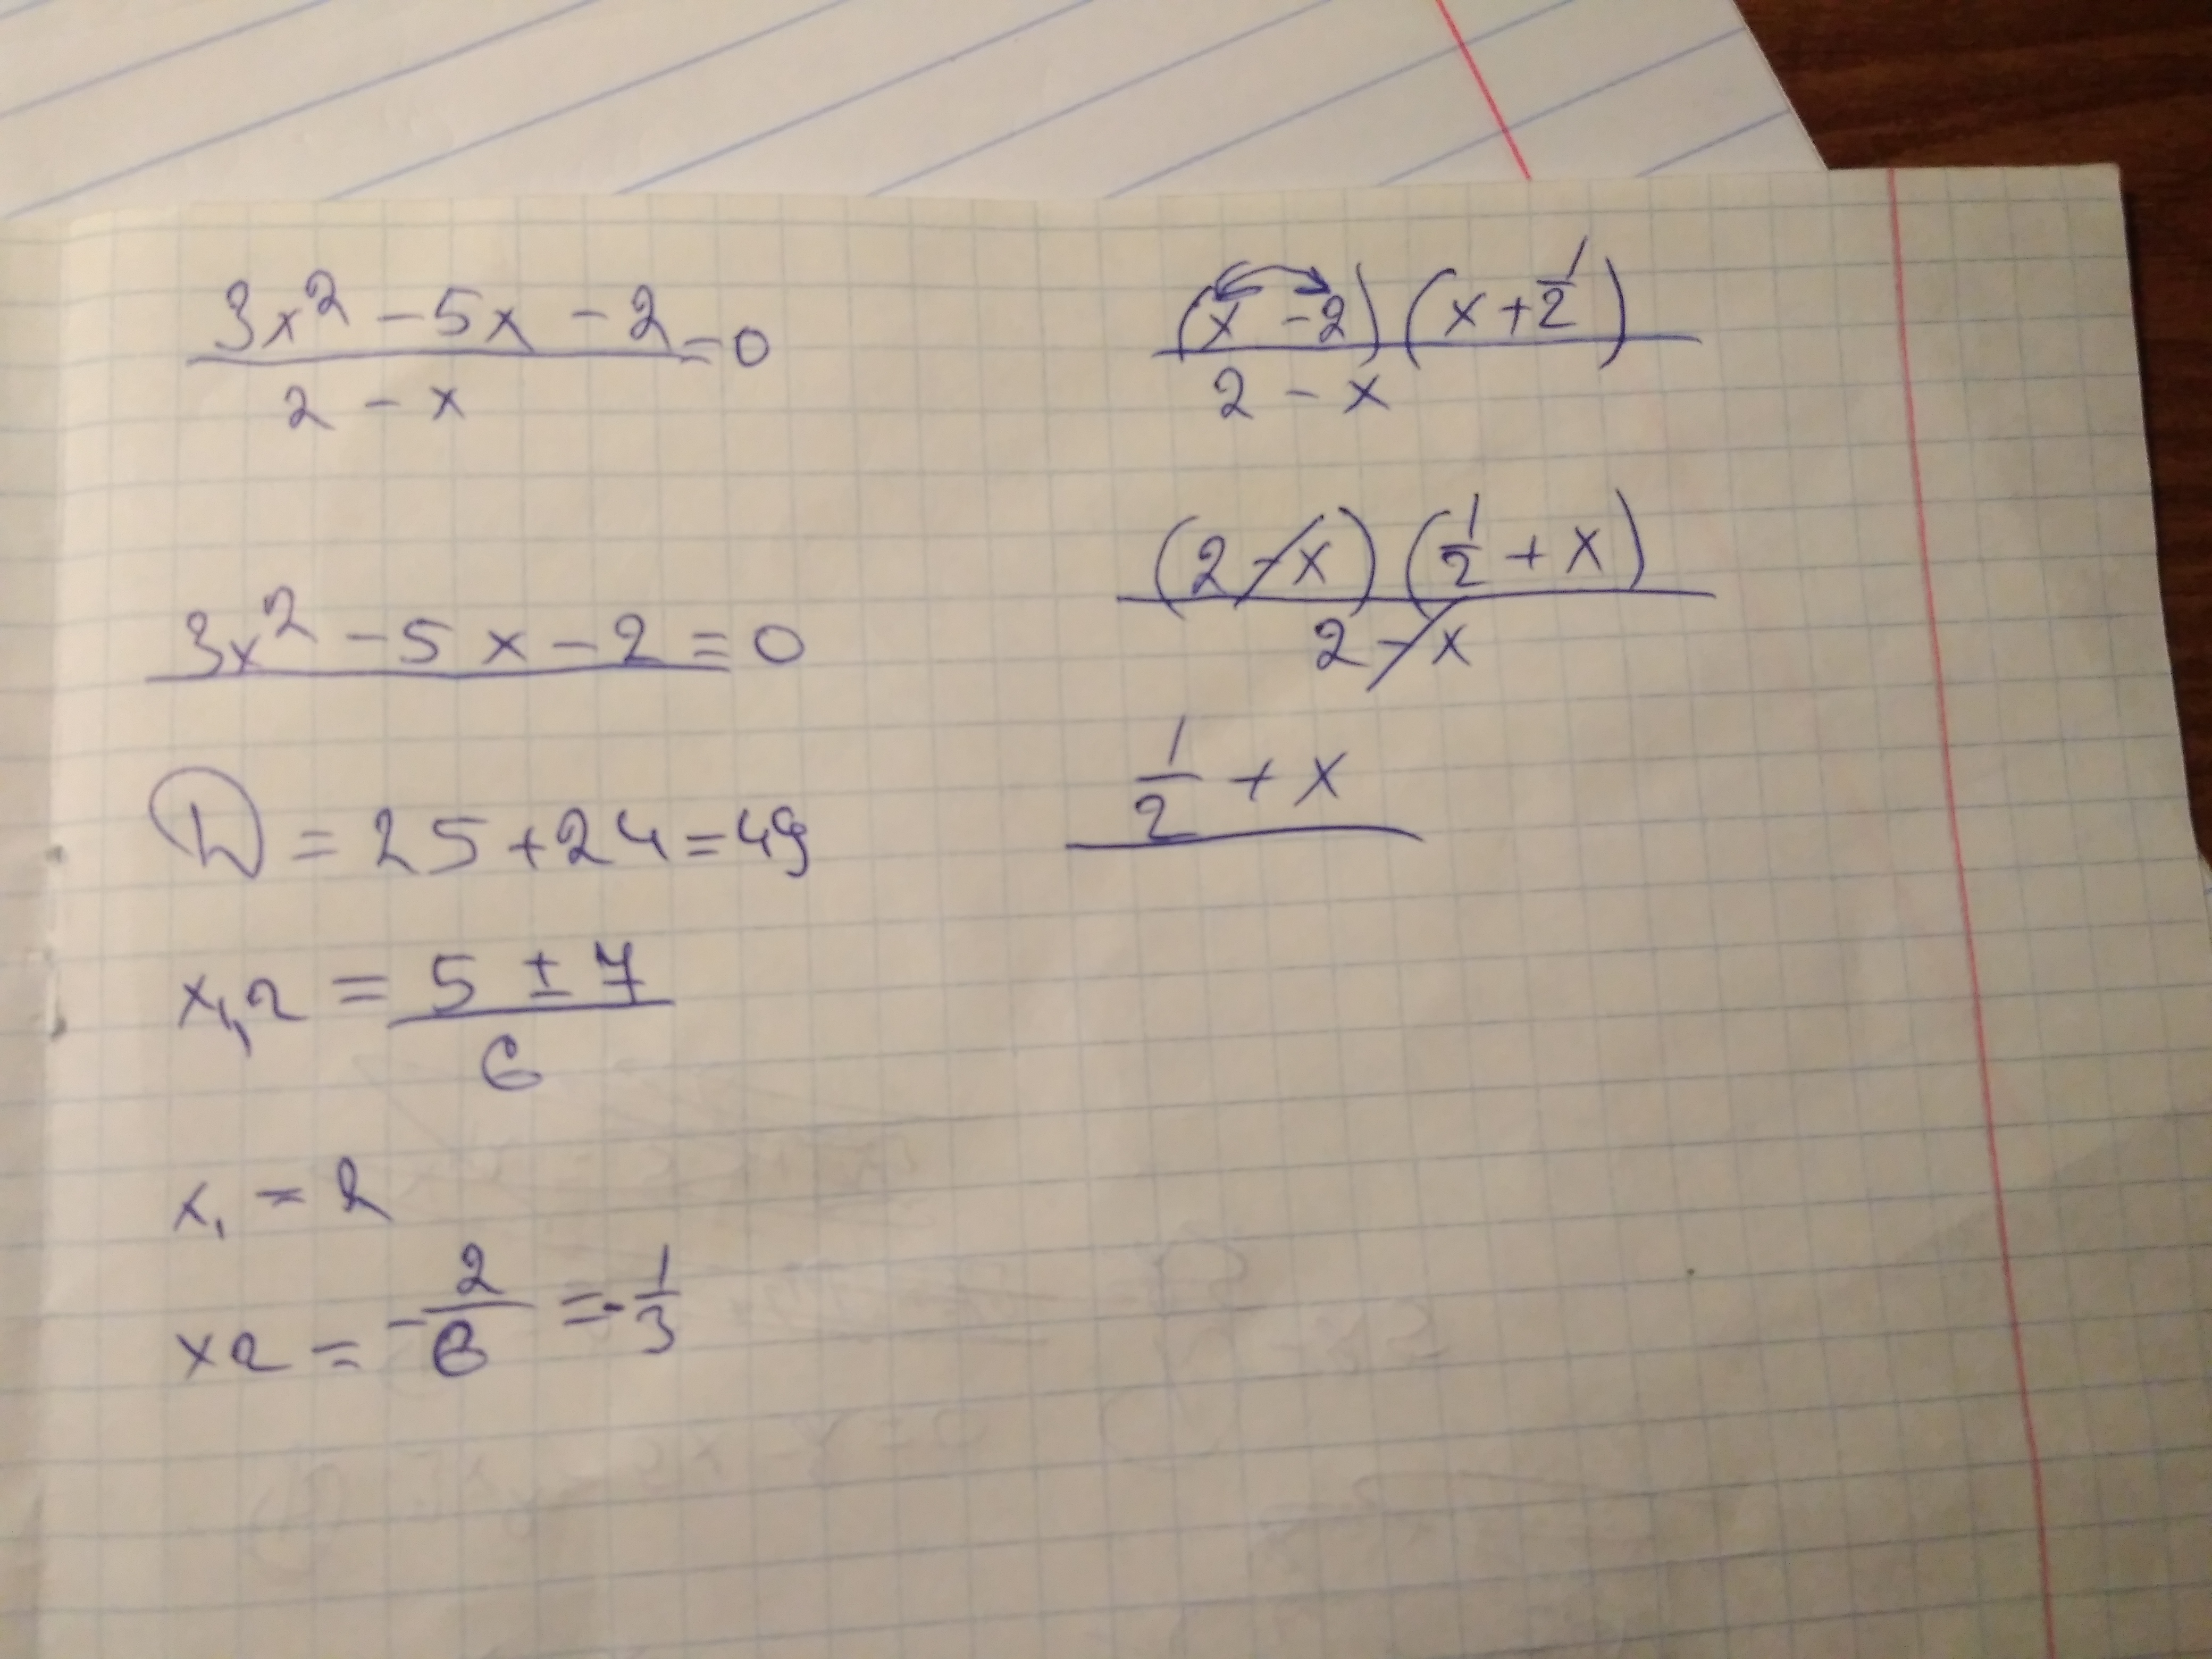 3x² - 5x - 2 = 0
2 - x
3x² - 5x - 2 = 0
D = 25 + 24 = 49
x1,2 = 5 ± 7
6
x1 = 2
x2 = - 2/6 = - 1/3
(x - 2) (x + 1/2)
2 - x
(2 - x) (1/2 + x)
2 - x
1/2 + x